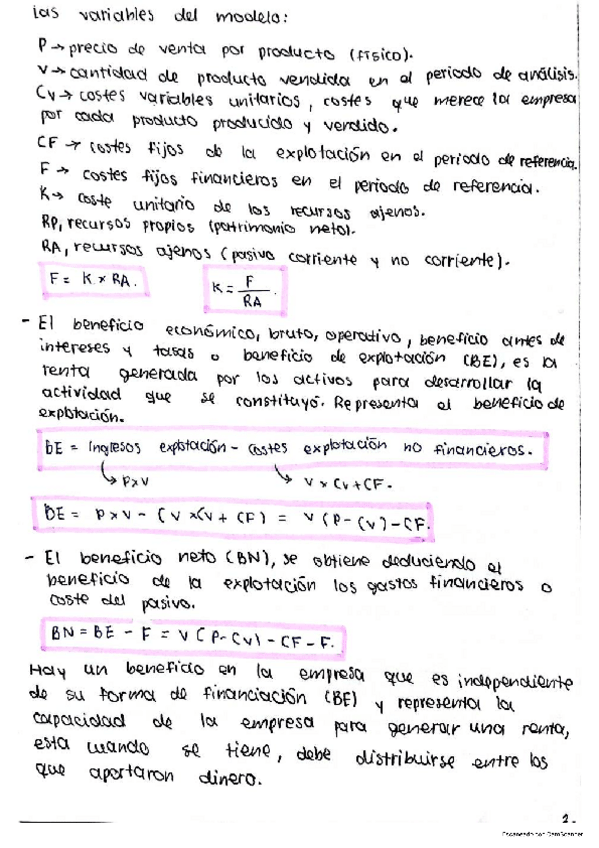 las variables del modelo:
P → precio de venta por producto (físico).
V → cantidad de producto vendida en el periodo de análisis.
Cv → costes variables unitarios, costes que merece la empresa
por cada producto producido y vendido.
CF → costes fijos de la explotación en el periodo de referencia.
F → costes fijos financieros en el periodo de referencia.
K → coste unitario de los recursos ajenos.
RP, recursos propios (patrimonio neto).
RA, recursos ajenos (pasivo corriente y no corriente).
F = K × RA. K = F / RA
- El beneficio económico, bruto, operativo, beneficio antes de
intereses y tasas o beneficio de explotación (BE), es la
renta generada por los activos para desarrollar la
actividad que se constituyó. Representa el beneficio de
explotación.
BE = Ingresos explotación - costes explotación no financieros.
↳ P×V ↳ V × Cv + CF.
BE = P × V - (V × Cv + CF) = V (P - Cv) - CF.
- El beneficio neto (BN), se obtiene deduciendo el
beneficio de la explotación los gastos financieros o
coste del pasivo.
BN = BE - F = V (P - Cv) - CF - F.
Hay un beneficio en la empresa que es independiente
de su forma de financiación (BE) y representa la
capacidad de la empresa para generar una renta,
esta cuando se tiene, debe distribuirse entre los
que aportaron dinero.
2.
Escaneado con CamScanner